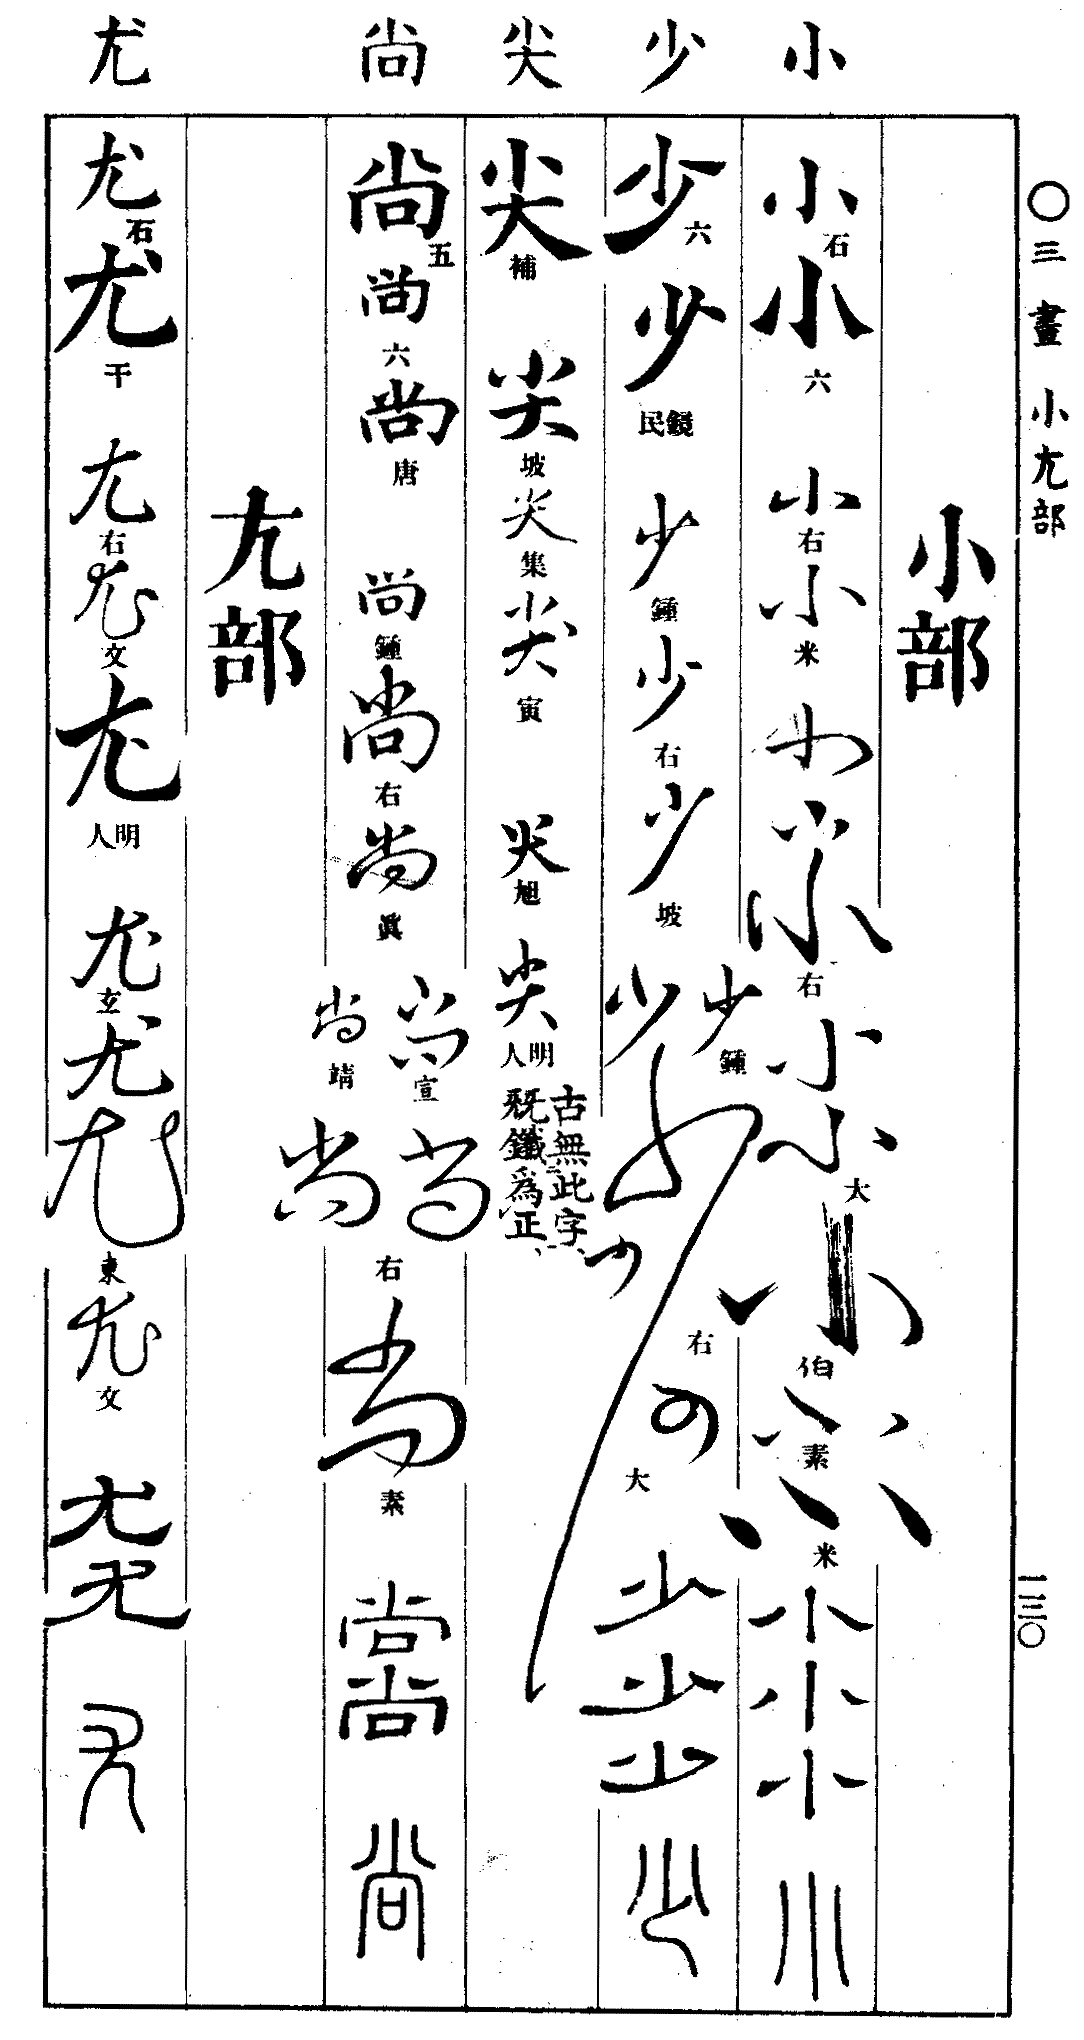 〇三畫 小尢部
一三〇
小
少
尖
尚
尤
小部
小石小六小右小米小小小右小小大小伯小素小米小小小小
少六少鏡民少鍾少右少坡少鍾少少少右少大少少少少
尖補尖坡尖集尖寅尖旭尖明人
古無此字
兓鑯爲正
尚五尚六尚唐尚鍾尚右尚眞尚宣尚靖尚尚右尚素尚尚尚
尢部
尤石尤干尤右尤文尤明人尤玄尤尤東尤文尤尤尤